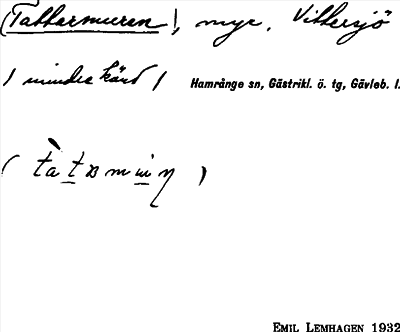 (Tattarmuren), myr, Vittersjö
/ mindre känd /  Hamrånge sn, Gästrikl. ö. tg, Gävleb. l.
EMIL LEMHAGEN 1932